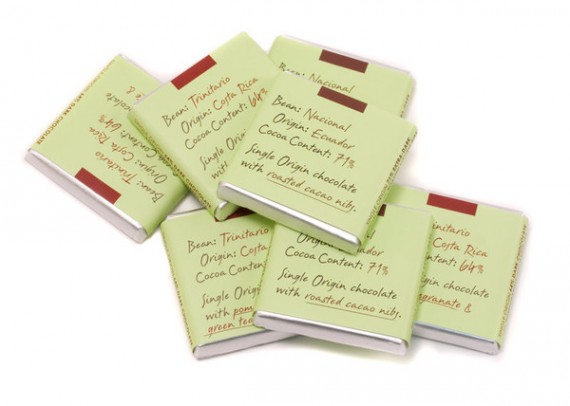 Bean: Nacional
Origin: Ecuador
Cocoa Content: 71%
Single Origin chocolate
with roasted cacao nibs.
Bean: Trinitario
Origin: Costa Rica
Cocoa Content: 64%
Single Origin
with
Bean: Nacional
Bean: Trinitario
Origin: Costa Rica
Content: 64%
chocolate
&
Bean: Trinitario
Origin: Costa
Cocoa Content:
Single Origin
with
green tea
Origin: Ecuador
Cocoa Content: 71%
Single Origin chocolate
with roasted cacao nibs.
Trinitario
Costa Rica
64%
chocolate
&